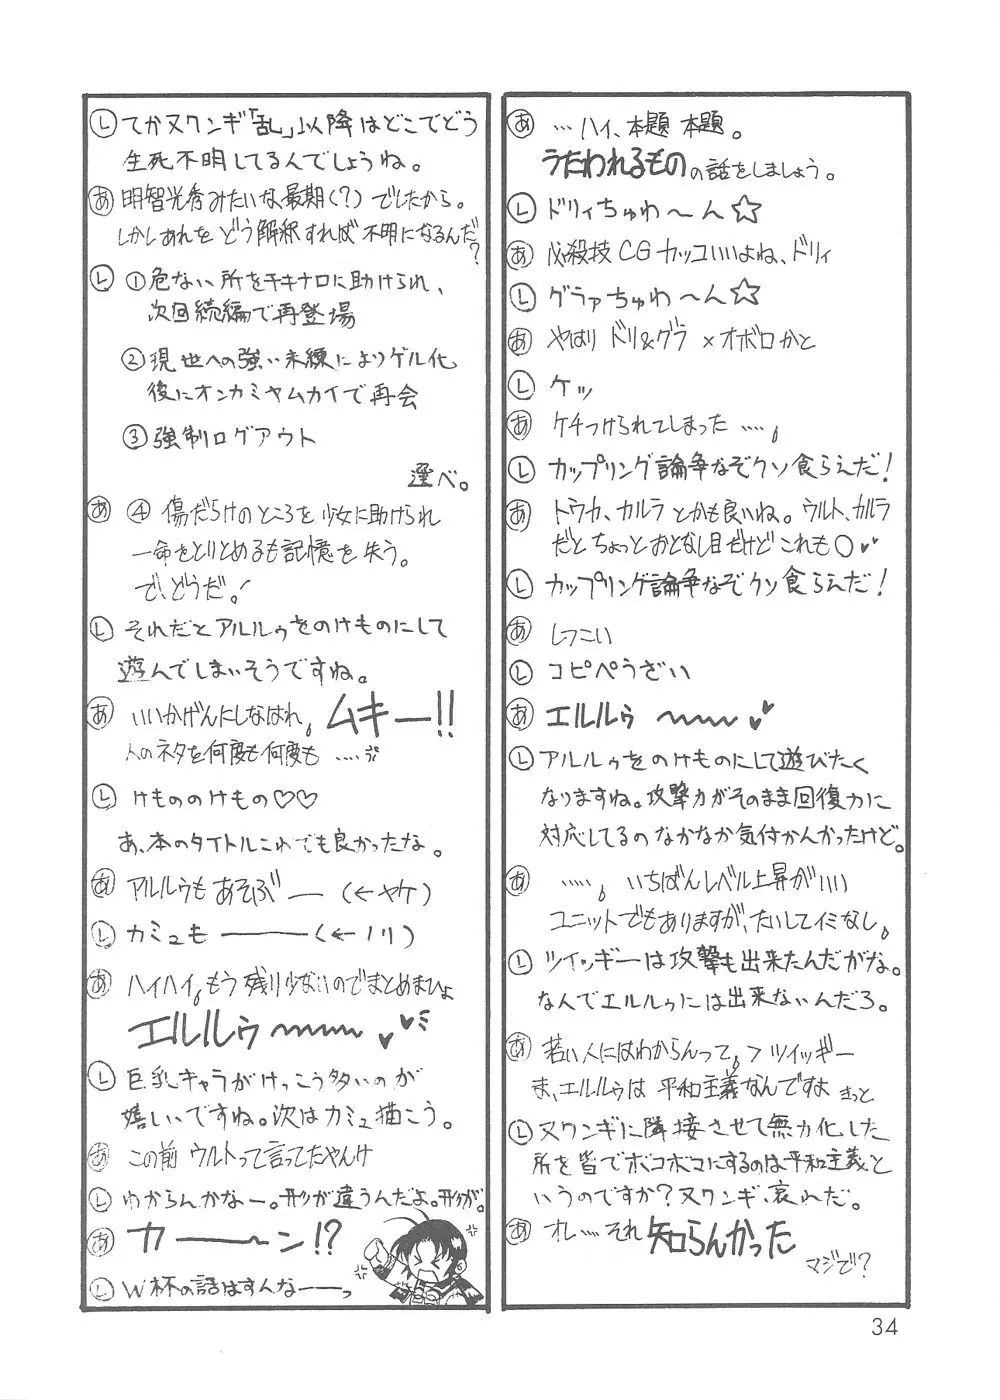 あ …ハイ、本題 本題。
うたわれるものの話をしましょう。
L ドリィちゅわ〜ん☆
あ 必殺技CGカッコいいよね、ドリィ
L グラァちゅわ〜ん☆
あ やはり ドリ&グラ×オボロかと
L ケッ
あ ケチつけられてしまった ….。
L カップリング論争なぞクソ食らえだ!
あ トウカ、カルラ とかも良いね。ウルト、カルラ
だと ちょっと おとなし目だけど これも○♥♥
L カップリング論争なぞクソ食らえだ!
あ しつこい
L コピペうざい
あ エルルゥ 〜〜〜♥♥
L アルルゥをのけものにして遊びたく
なりますね。攻撃力がそのまま回復力に
対応してるの なかなか気付かんかったけど。
あ …..。いちばんレベル上昇がいい
ユニットでもありますが、たいしてイミなし。
L ツイッギーは攻撃も出来たんだがな。
なんでエルルゥには出来ないんだろ。
あ 若い人にはわからんって。>ツイッギー
ま、エルルゥは 平和主義なんですよ きっと
L ヌワンギに隣接させて無力化した
所を皆でボコボコにするのは平和主義と
いうのですか?ヌワンギ、哀れだ。
あ オレ….それ 知らんかった
マジで?
L てかヌワンギ「乱」以降はどこでどう
生死不明してるんでしょうね。
あ 明智光秀みたいな最期(?)でしたから。
しかしあれを どう解釈すれば 不明になるんだ?
L ①危ない所をチキナロに助けられ、
次回続編で再登場
②現世への強い未練によりゲル化
後にオンカミヤムカイで再会
③強制ログアウト
選べ。
あ ④ 傷だらけのところを少女に助けられ
一命をとりとめるも記憶を失う。
で、どうだ!
L それだとアルルゥをのけものにして
遊んでしまいそうですね。
あ いいかげんにしなはれ。ムキー!!
人のネタを何度も何度も …..
L けもののけもの♡♡
あ、本のタイトルこれでも良かったな。
あ アルルゥも あそぶ ー (←ヤケ)
L カミュも ーーー(←ノリ)
あ ハイハイ。もう残り少ないのでまとめまひょ
エルルゥ 〜〜〜♥♥
L 巨乳キャラがけっこう多いのが
嬉しいですね。次はカミュ描こう。
あ この前 ウルトって言ってたやんけ
L わからんかなー。形が違うんだよ。形が。
あ カーー〜ン!?
L W杯の話はすんなーーっ
34